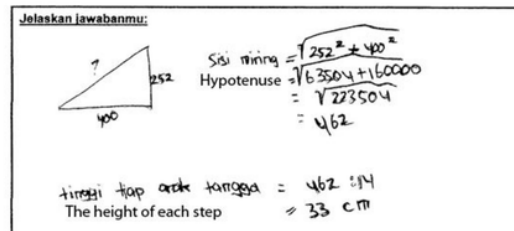 Jelaskan jawabanmu:
?
252
400
Sisi miring = √252² + 400²
Hypotenuse = √63504 + 160000
= √223504
= 462
tinggi tiap anak tangga = 462 : 14
The height of each step = 33 cm